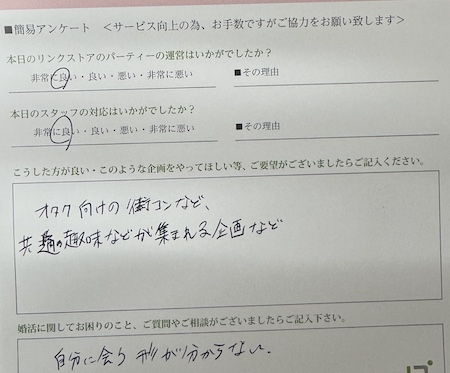 ■簡易アンケート ＜サービス向上の為、お手数ですがご協力をお願い致します＞
本日のリンクストアのパーティーの運営はいかがでしたか？
非常に良い・良い・悪い・非常に悪い ■その理由
本日のスタッフの対応はいかがでしたか？
非常に良い・良い・悪い・非常に悪い ■その理由
こうした方が良い・このような企画をやってほしい等、ご要望がございましたらご記入ください。
オタク向けの街コンなど、
共通の趣味などが集まれる企画など
婚活に関してお困りのこと、ご質問やご相談がございましたらご記入下さい。
自分に会う が分からない。